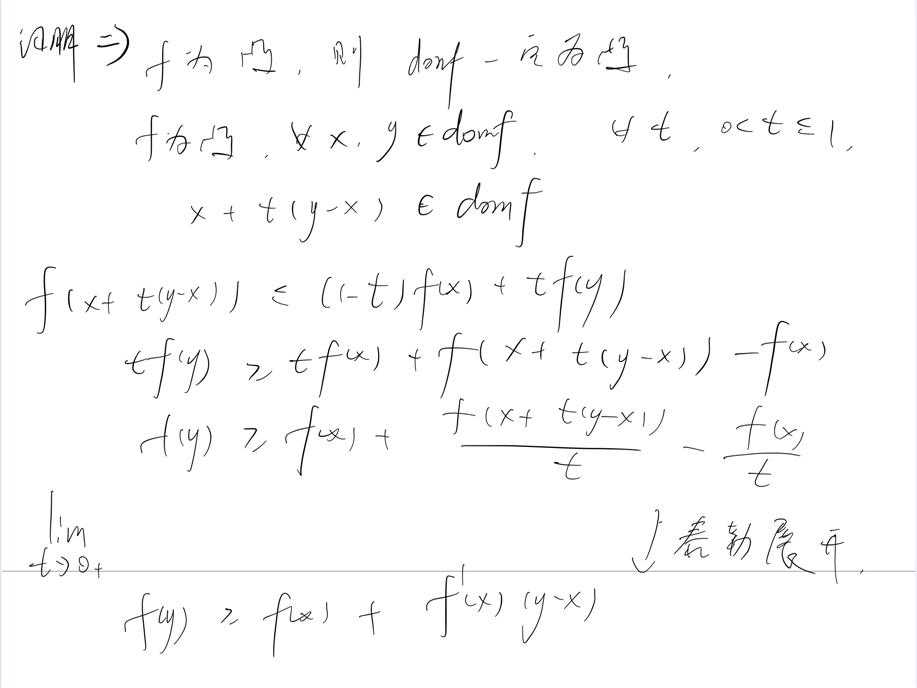 证明 ⇒) f为凸, 则 domf 一定为凸,
f为凸, ∀ x, y ∈ domf. ∀ t, 0<t≤1,
x + t(y-x) ∈ domf
f(x+ t(y-x)) ≤ (1-t)f(x) + tf(y)
tf(y) ≥ tf(x) + f(x+ t(y-x)) - f(x)
f(y) ≥ f(x) + f(x+ t(y-x))/t - f(x)/t
lim t→0+ ↓泰勒展开.
f(y) ≥ f(x) + f'(x)(y-x)